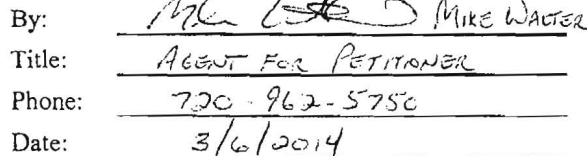 By: MIKE WALTER
Title: AGENT FOR PETITIONER
Phone: 720-962-5750
Date: 3/6/2014